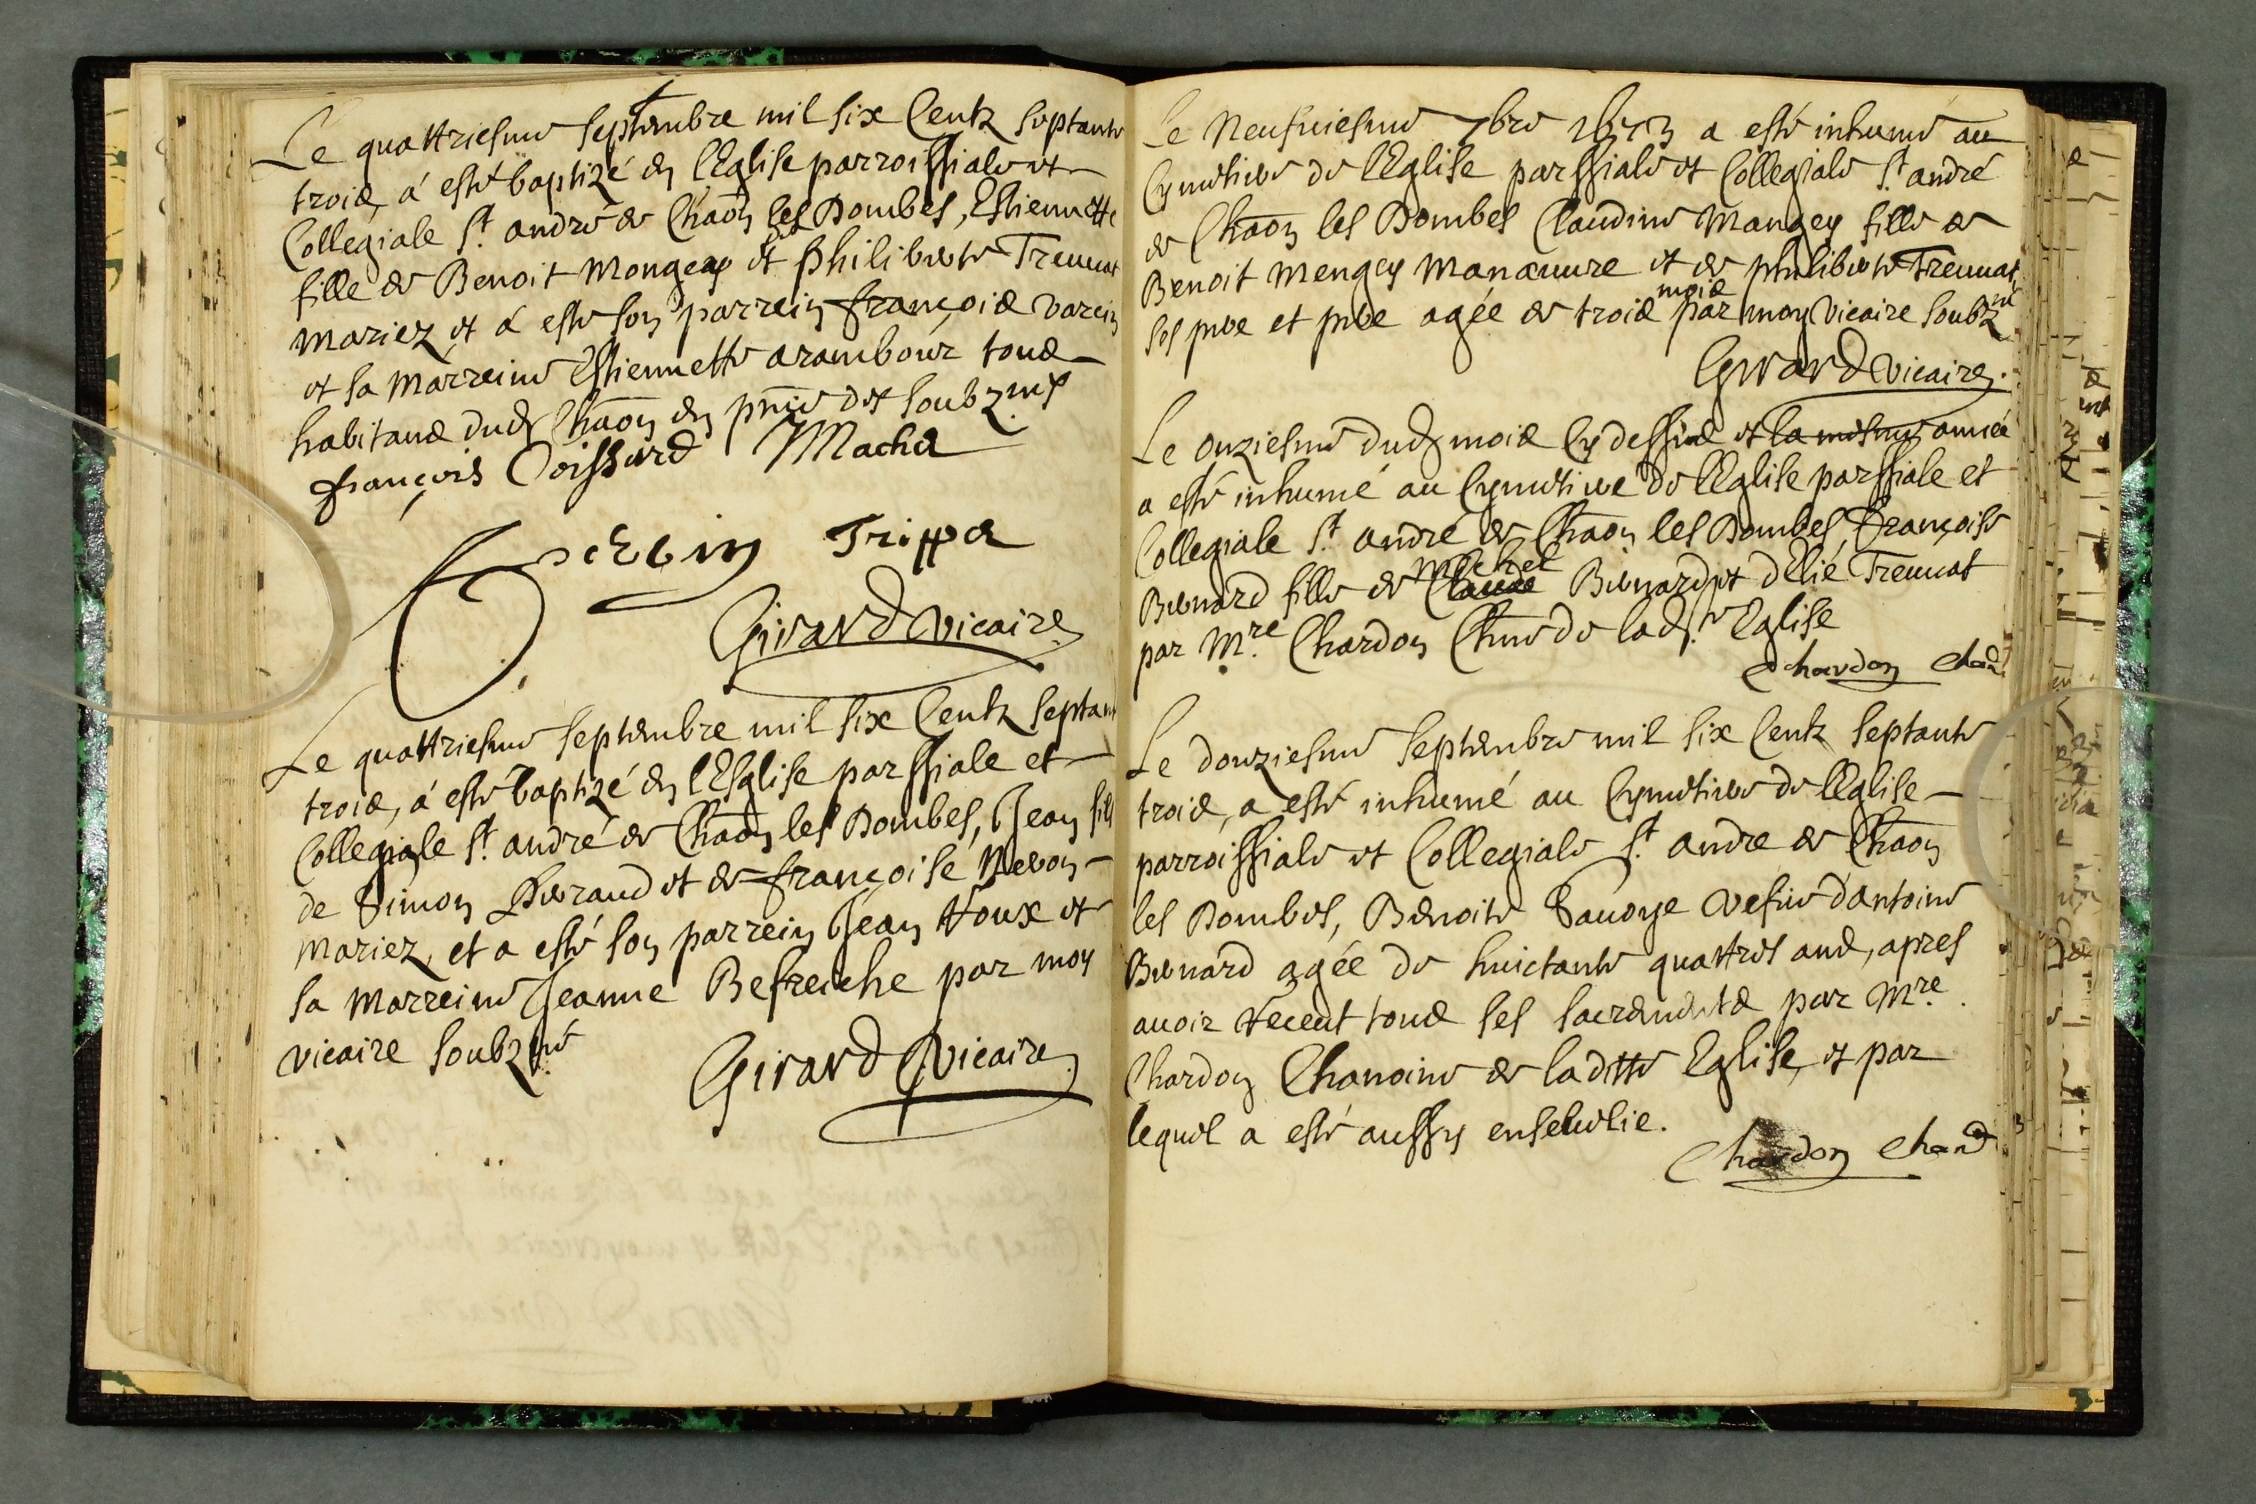 Le quattriesme septembre mil six Centz septante
trois, a esté baptizé en l'Eglise parroissiale et
Collegiale St. andré de Chaōn les Dombes, Estiennette
fille de Benoit Mongey et de philiberte Treunat
mariez et a esté son parrein françois varein
et sa marreine Estiennette arambour tous
habitans dud. Chaōn en pnce des soubznés
françois Coissard Machd
Trippa
Girard vicaire
Le quattriesme septembre mil six Centz septante
trois, a esté baptizé en l'Esglise parssiale et
Collegiale St. andré de Chaōn les Dombes, Jean fils
de Simon Durand et de françoise Nevon
mariez, et a esté son parrein Jean Roux et
sa marreine Jeanne Befreiche par moy
vicaire soubzné
Girard Vicaire
Le Neufviesme 7bre 1673 a esté inhumé au
Cymetiere de l'Eglise parssiale et Collegiale St. andré
de Chaōn les Dombes Claudine Mangey fille de
Benoit Mengey Manœuvre et de philiberte Treunat
ses pere et mere agée de trois mois par moy vicaire soubzné
Girard vicaire.
Le onziesme dud. mois Cy dessus et la mesme année
a esté inhumé au Cymetiere de l'Eglise parssiale et
Collegiale St. andré de Chaōn les Dombes, Françoise
Bernard fille de Claude michel Bernard et d'Elié Treunat
par Mre. Chardon Chne de lad.te Eglise
Chardon chan.
Le douziesme septembre mil six Centz septante
trois, a esté inhumé au Cymetiere de l'Eglise
parroissiale et Collegiale St. andre de Chaōn
les Dombes, Benoite Sauoye vefue d'antoine
Bernard agée de huictante quattres ans, apres
auoir receut tous ses sacrements par Mre.
Chardon Chanoine de laditte Eglise, et par
lequel a esté aussy ensevelie.
Chardon chan